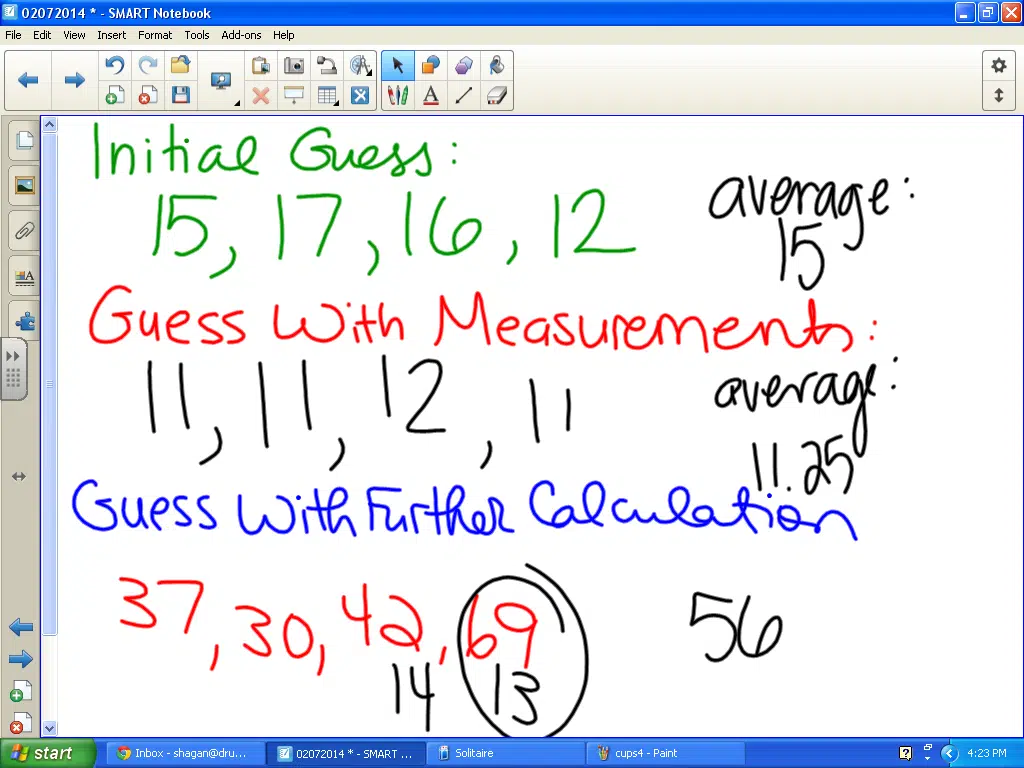 02072014 * - SMART Notebook
File Edit View Insert Format Tools Add-ons Help
Initial Guess:
15, 17, 16, 12
average:
15
Guess With Measurements:
11, 11, 12, 11
average:
11.25
Guess With Further Calculation
37, 30, 42, 69
56
14 13
start
Inbox - shagan@dru...
02072014 * - SMART ...
Solitaire
cups4 - Paint
4:23 PM